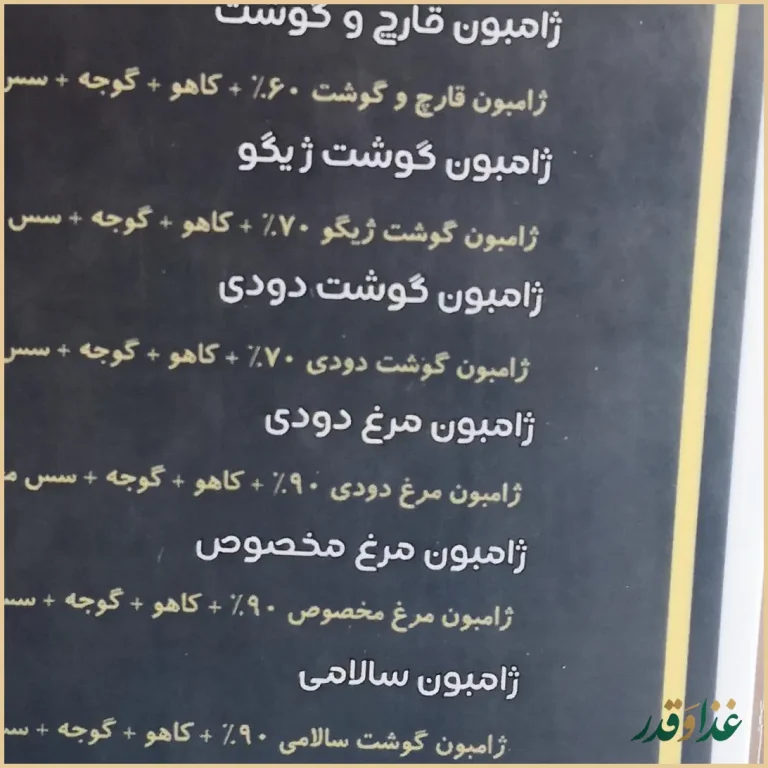 ژامبون قارچ و گوشت
ژامبون قارچ و گوشت ۶۰٪ + کاهو + گوجه + سس
ژامبون گوشت ژیگو
ژامبون گوشت ژیگو ۷۰٪ + کاهو + گوجه + سس
ژامبون گوشت دودی
ژامبون گوشت دودی ۷۰٪ + کاهو + گوجه + سس
ژامبون مرغ دودی
ژامبون مرغ دودی ۹۰٪ + کاهو + گوجه + سس
ژامبون مرغ مخصوص
ژامبون مرغ مخصوص ۹۰٪ + کاهو + گوجه +
ژامبون سالامی
ژامبون گوشت سالامی ۹۰٪ + کاهو + گوجه +
غذا و قدر